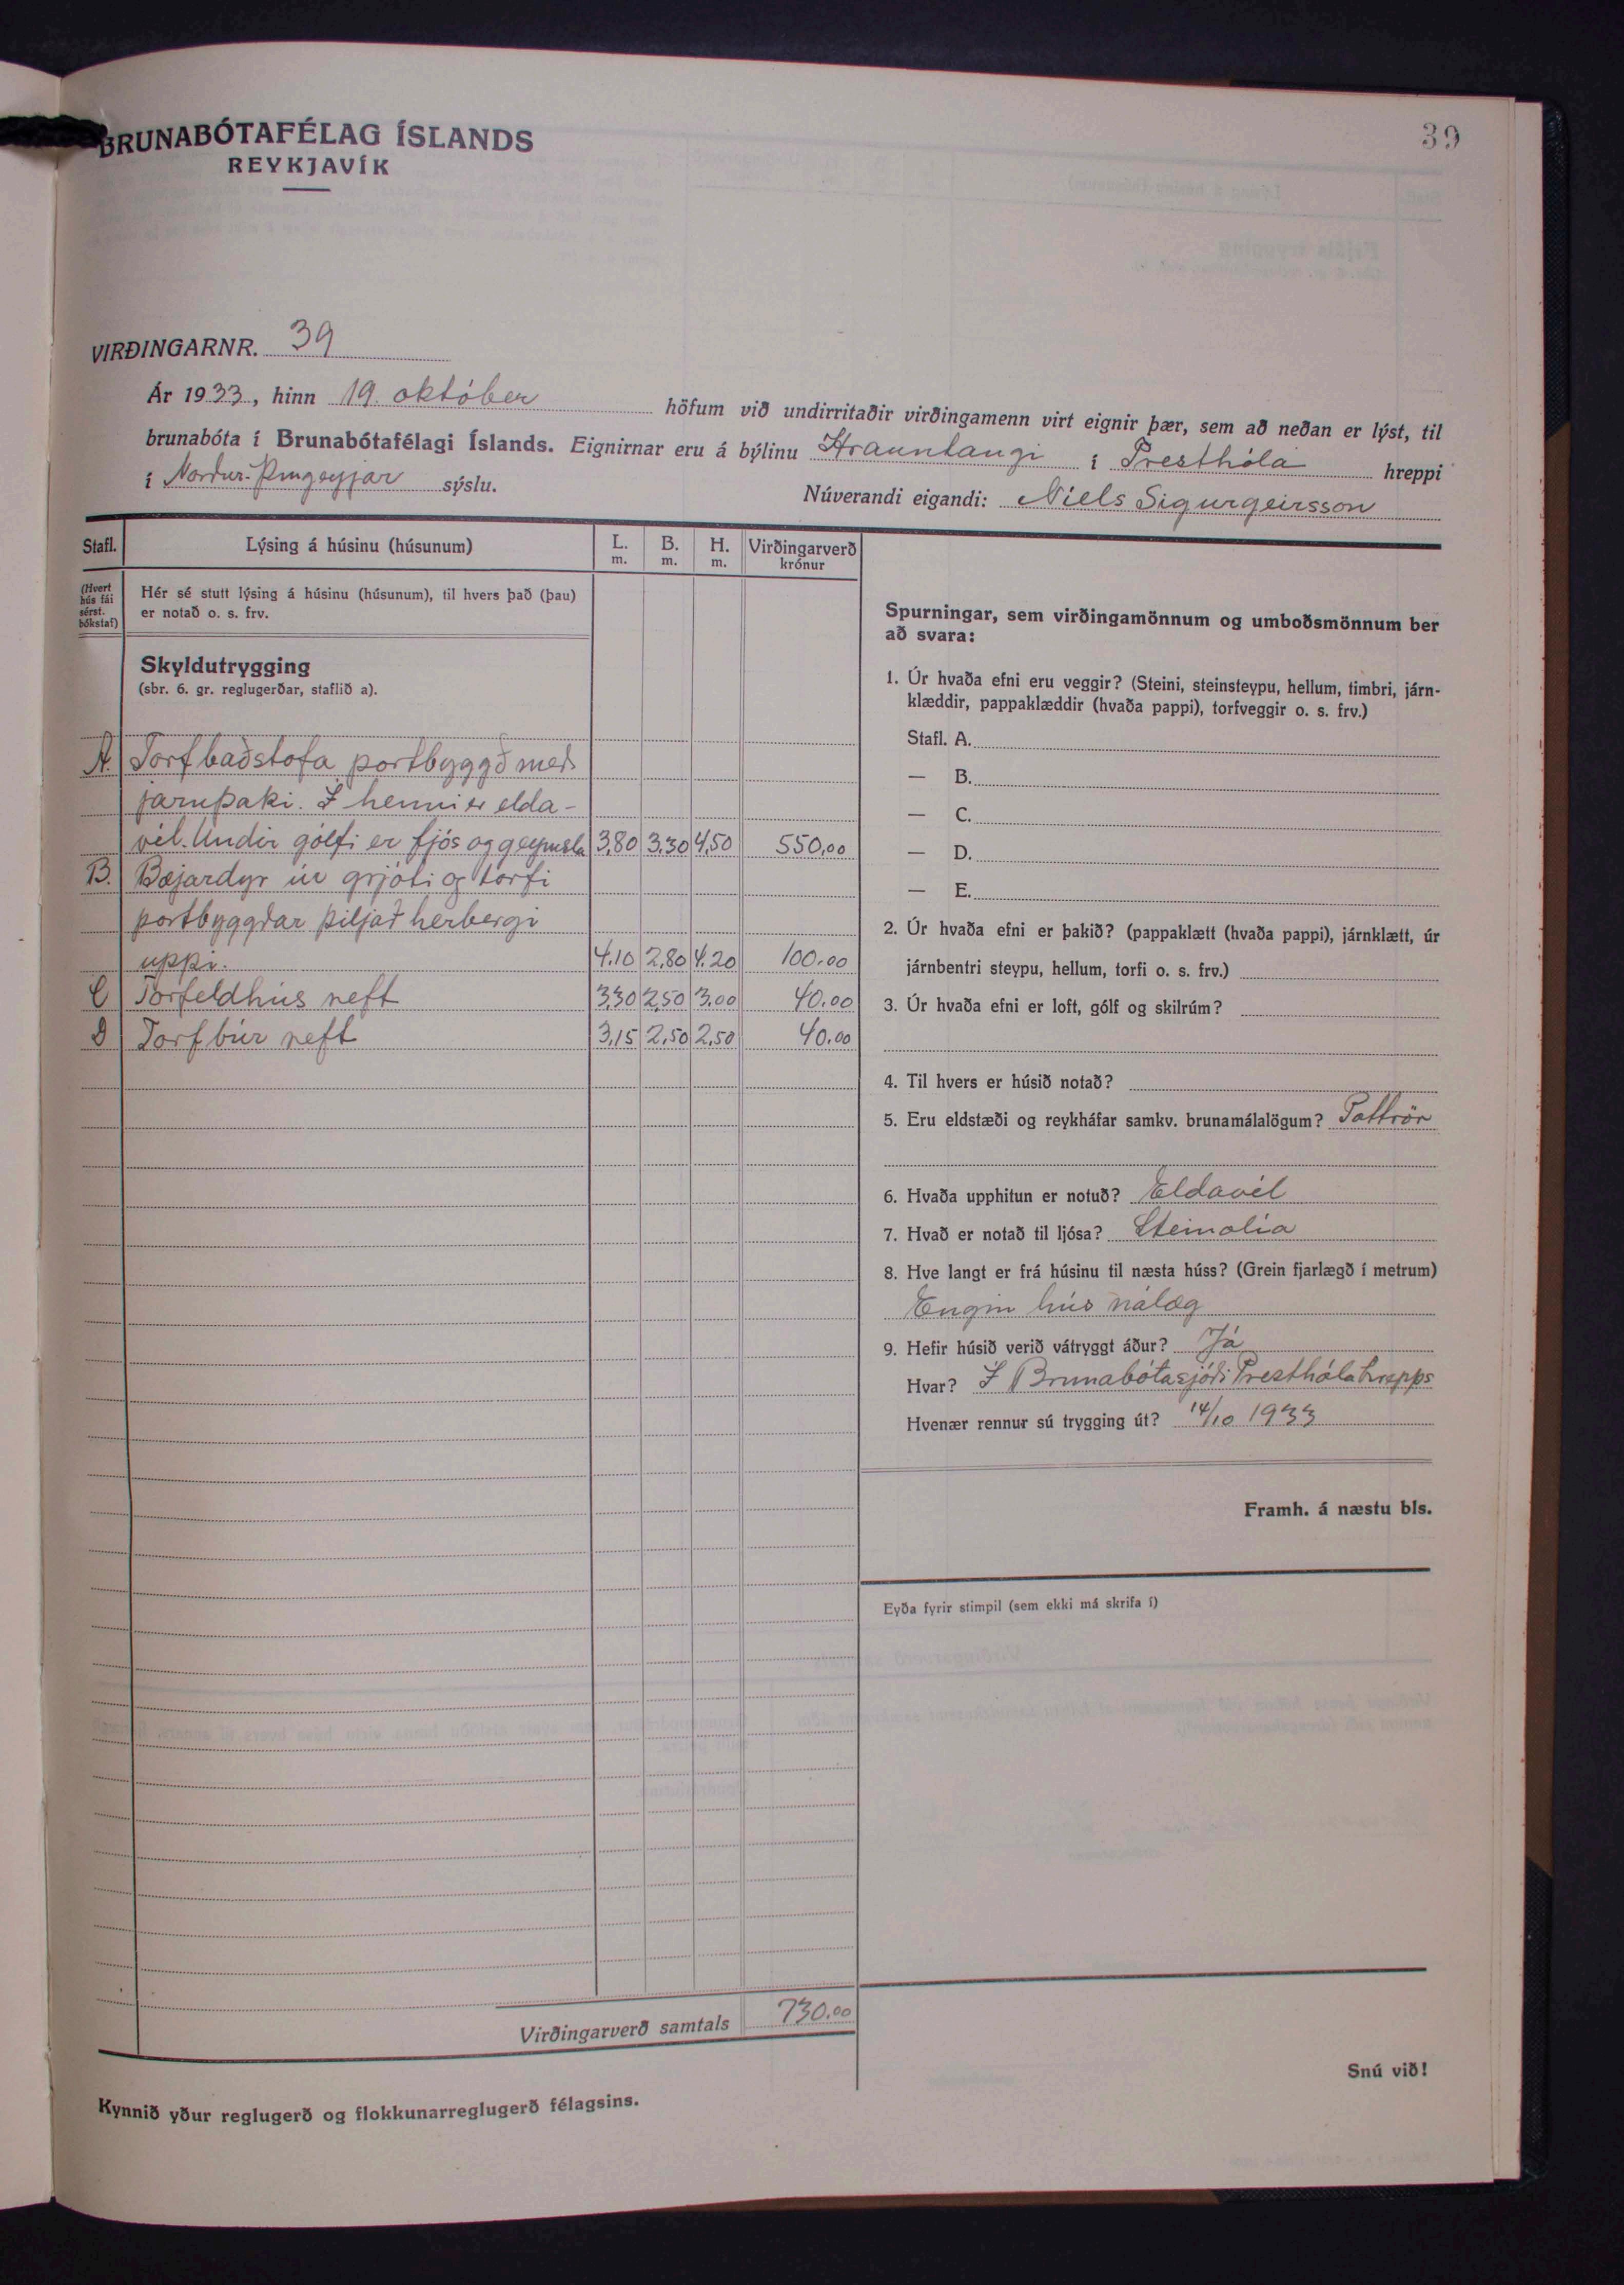 BRUNABÓTAFÉLAG ÍSLANDS
REYKJAVÍK
39
VIRÐINGARNR. 39
Ár 1933, hinn 19. október höfum við undirritaðir virðingamenn virt eignir þær, sem að neðan er lýst, til
brunabóta í Brunabótafélagi Íslands. Eignirnar eru á býlinu Hrauntangi í Presthóla hreppi
í Norður-Þingeyjar sýslu. Núverandi eigandi: Níels Sigurgeirsson
Stafl. Lýsing á húsinu (húsunum) L. m. B. m. H. m. Virðingarverð krónur
(Hvert hús fái sérst. bókstaf)
Hér sé stutt lýsing á húsinu (húsunum), til hvers það (þau)
er notað o. s. frv.
Skyldutrygging
(sbr. 6. gr. reglugerðar, staflið a).
A. Torfbaðstofa portbyggð með
járnþaki. Í henni er elda-
vél. Undir gólfi er fjós og geymsla 3,80 3,30 4,50 550,00
B. Bæjardyr úr grjóti og torfi
portbyggðar þiljað herbergi
uppi. 4.10 2,80 4.20 100.00
C Torfeldhús reft 3,30 2,50 3,00 40.00
D Torfbúr reft 3,15 2,50 2,50 40.00
Virðingarverð samtals 730.00
Kynnið yður reglugerð og flokkunarreglugerð félagsins.
Spurningar, sem virðingamönnum og umboðsmönnum ber
að svara:
1. Úr hvaða efni eru veggir? (Steini, steinsteypu, hellum, timbri, járn-
klæddir, pappaklæddir (hvaða pappi), torfveggir o. s. frv.)
Stafl. A.
— B.
— C.
— D.
— E.
2. Úr hvaða efni er þakið? (pappaklætt (hvaða pappi), járnklætt, úr
járnbentri steypu, hellum, torfi o. s. frv.)
3. Úr hvaða efni er loft, gólf og skilrúm?
4. Til hvers er húsið notað?
5. Eru eldstæði og reykháfar samkv. brunamálalögum? Pottrör
6. Hvaða upphitun er notuð? Eldavél
7. Hvað er notað til ljósa? Steinolía
8. Hve langt er frá húsinu til næsta húss? (Grein fjarlægð í metrum)
Engin hús nálæg
9. Hefir húsið verið vátryggt áður? Já
Hvar? Í Brunabótasjóði Presthólahrepps
Hvenær rennur sú trygging út? 14/10 1933
Framh. á næstu bls.
Eyða fyrir stimpil (sem ekki má skrifa í)
Snú við!